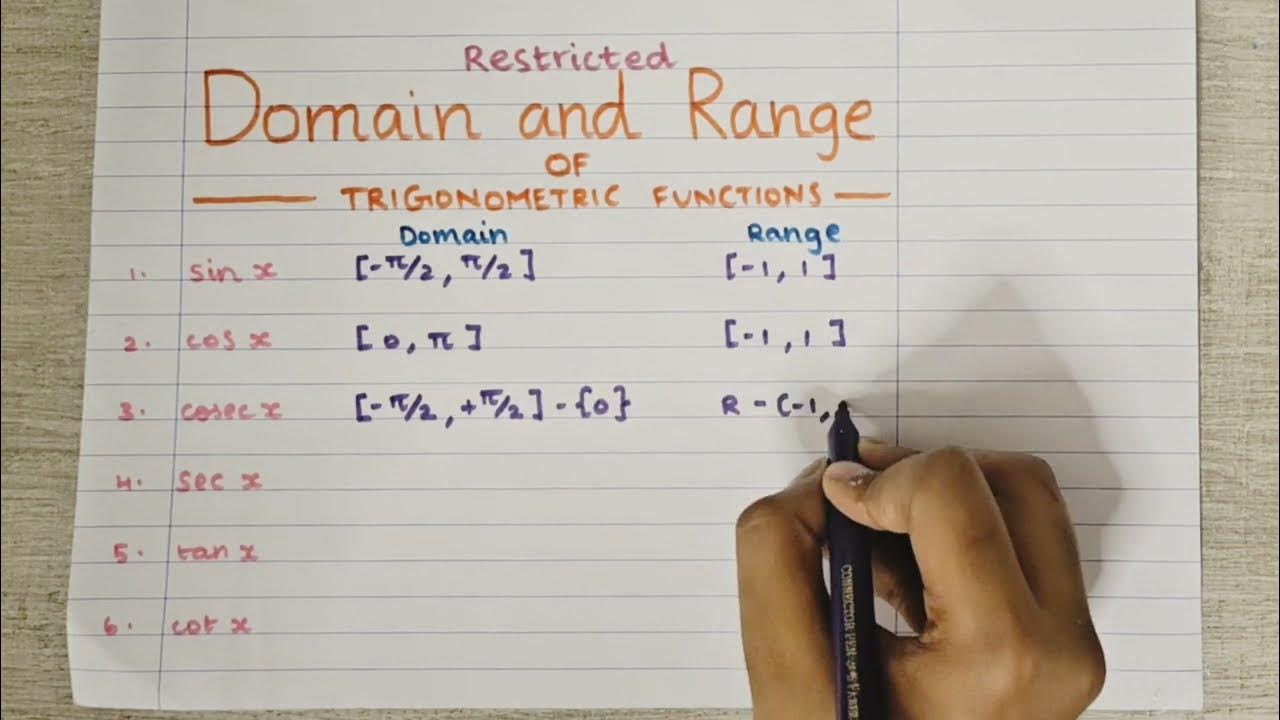 Restricted
Domain and Range
OF
TRIGONOMETRIC FUNCTIONS
Domain Range
1. sin x [-π/2, π/2] [-1, 1]
2. cos x [0, π] [-1, 1]
3. cosec x [-π/2, +π/2] - {0} R - (-1,
4. sec x
5. tan x
6. cot x